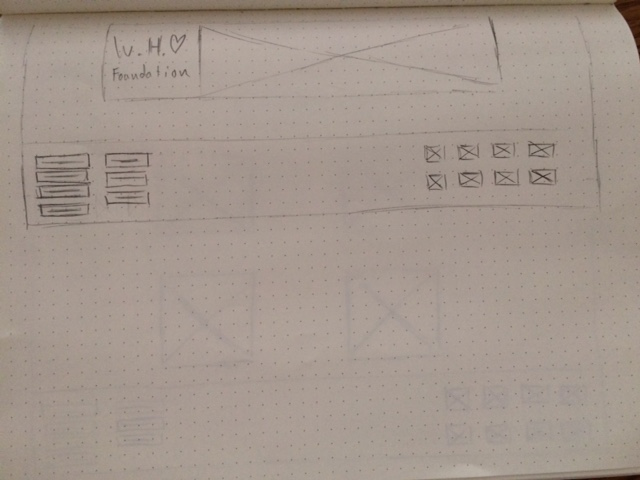 lv. H.♡
Foundation